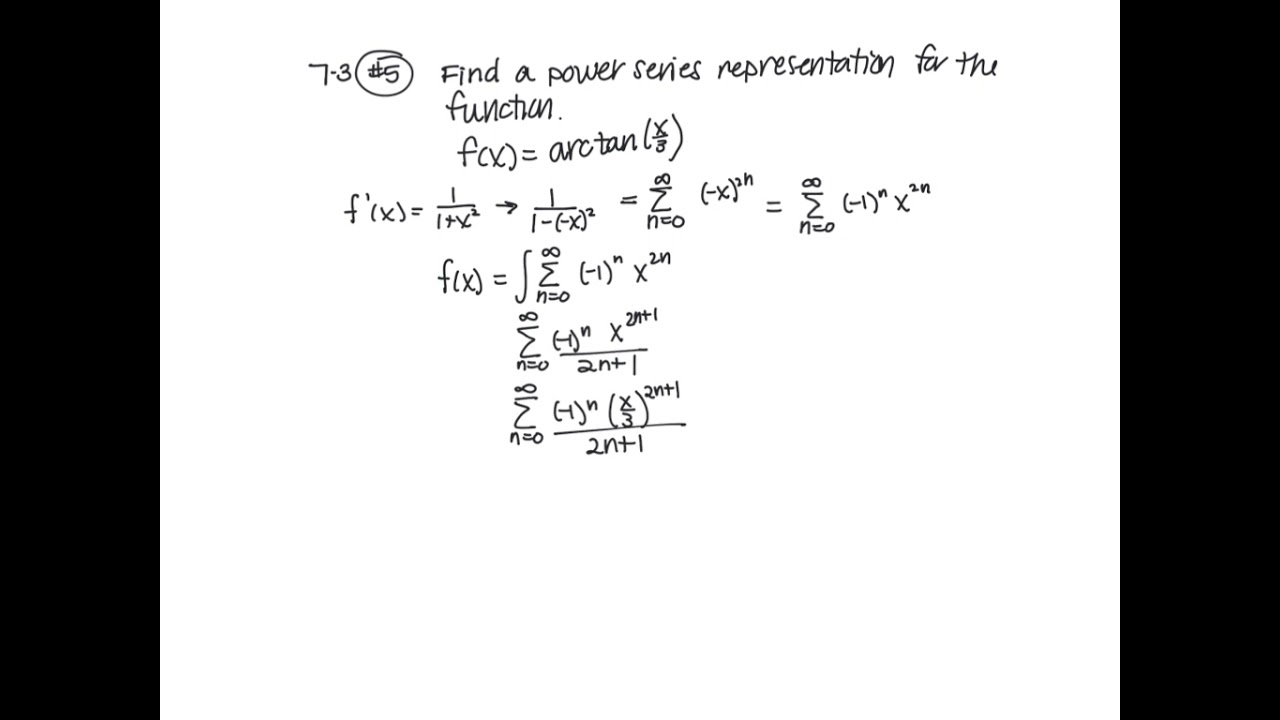 7-3 #5 Find a power series representation for the
function.
f(x) = arctan(x/3)
f'(x) = 1/(1+x²) → 1/(1-(-x)²) = ∑_{n=0}^{∞} (-x)^{2n} = ∑_{n=0}^{∞} (-1)^n x^{2n}
f(x) = ∫ ∑_{n=0}^{∞} (-1)^n x^{2n}
∑_{n=0}^{∞} (-1)^n x^{2n+1}/(2n+1)
∑_{n=0}^{∞} (-1)^n (x/3)^{2n+1}/(2n+1)